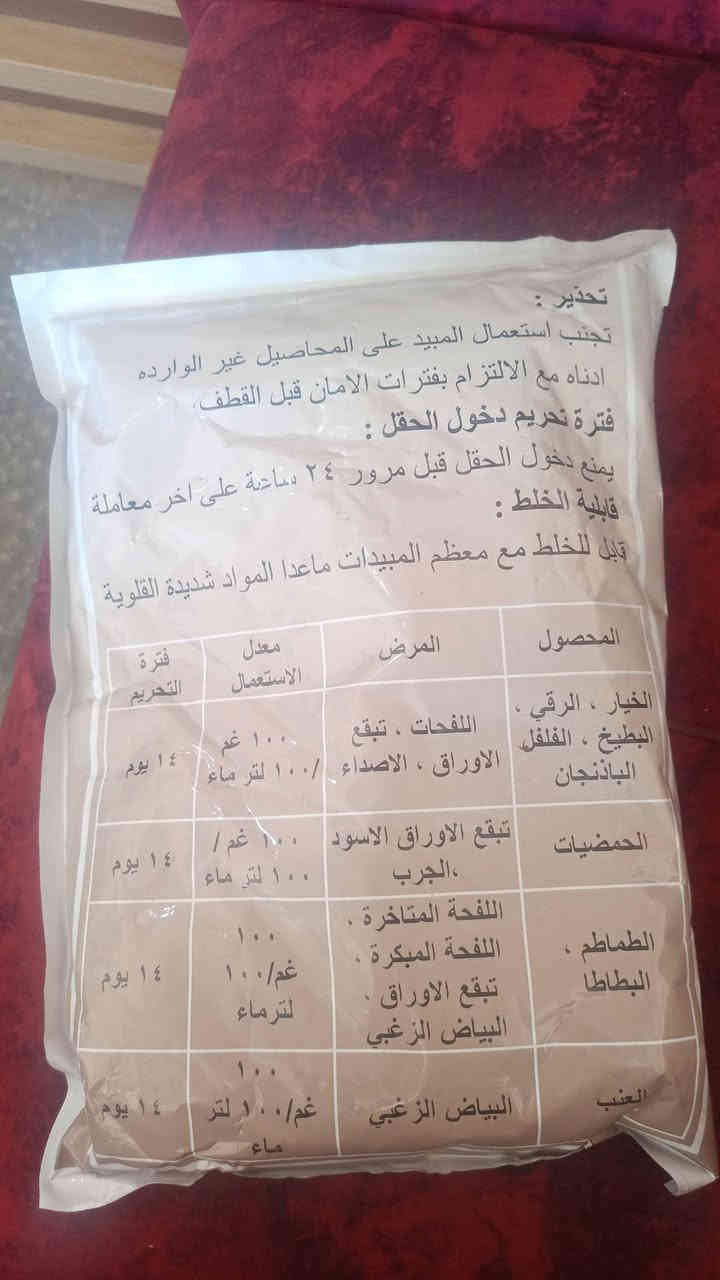 تحذير :
تجنب استعمال المبيد على المحاصيل غير الوارده
ادناه مع الالتزام بفترات الامان قبل القطف.
فترة تحريم دخول الحقل :
يمنع دخول الحقل قبل مرور ٢٤ ساعة على اخر معاملة
قابلية الخلط :
قابل للخلط مع معظم المبيدات ماعدا المواد شديدة القلوية
المحصول
المرض
معدل
الاستعمال
فترة
التحريم
الخيار ، الرقي ،
البطيخ ، الفلفل
الباذنجان
اللفحات ، تبقع
الاوراق ، الاصداء
١٠٠ غم
/١٠٠ لتر ماء
١٤ يوم
الحمضيات
تبقع الاوراق الاسود
،الجرب
١٠٠ غم /
١٠٠ لتر ماء
١٤ يوم
الطماطم ،
البطاطا
اللفحة المتاخرة ،
اللفحة المبكرة ،
تبقع الاوراق ،
البياض الزغبي
١٠٠
غم/١٠٠
لترماء
١٤ يوم
العنب
البياض الزغبي
١٠٠
غم/١٠٠ لتر
ماء
١٤ يوم